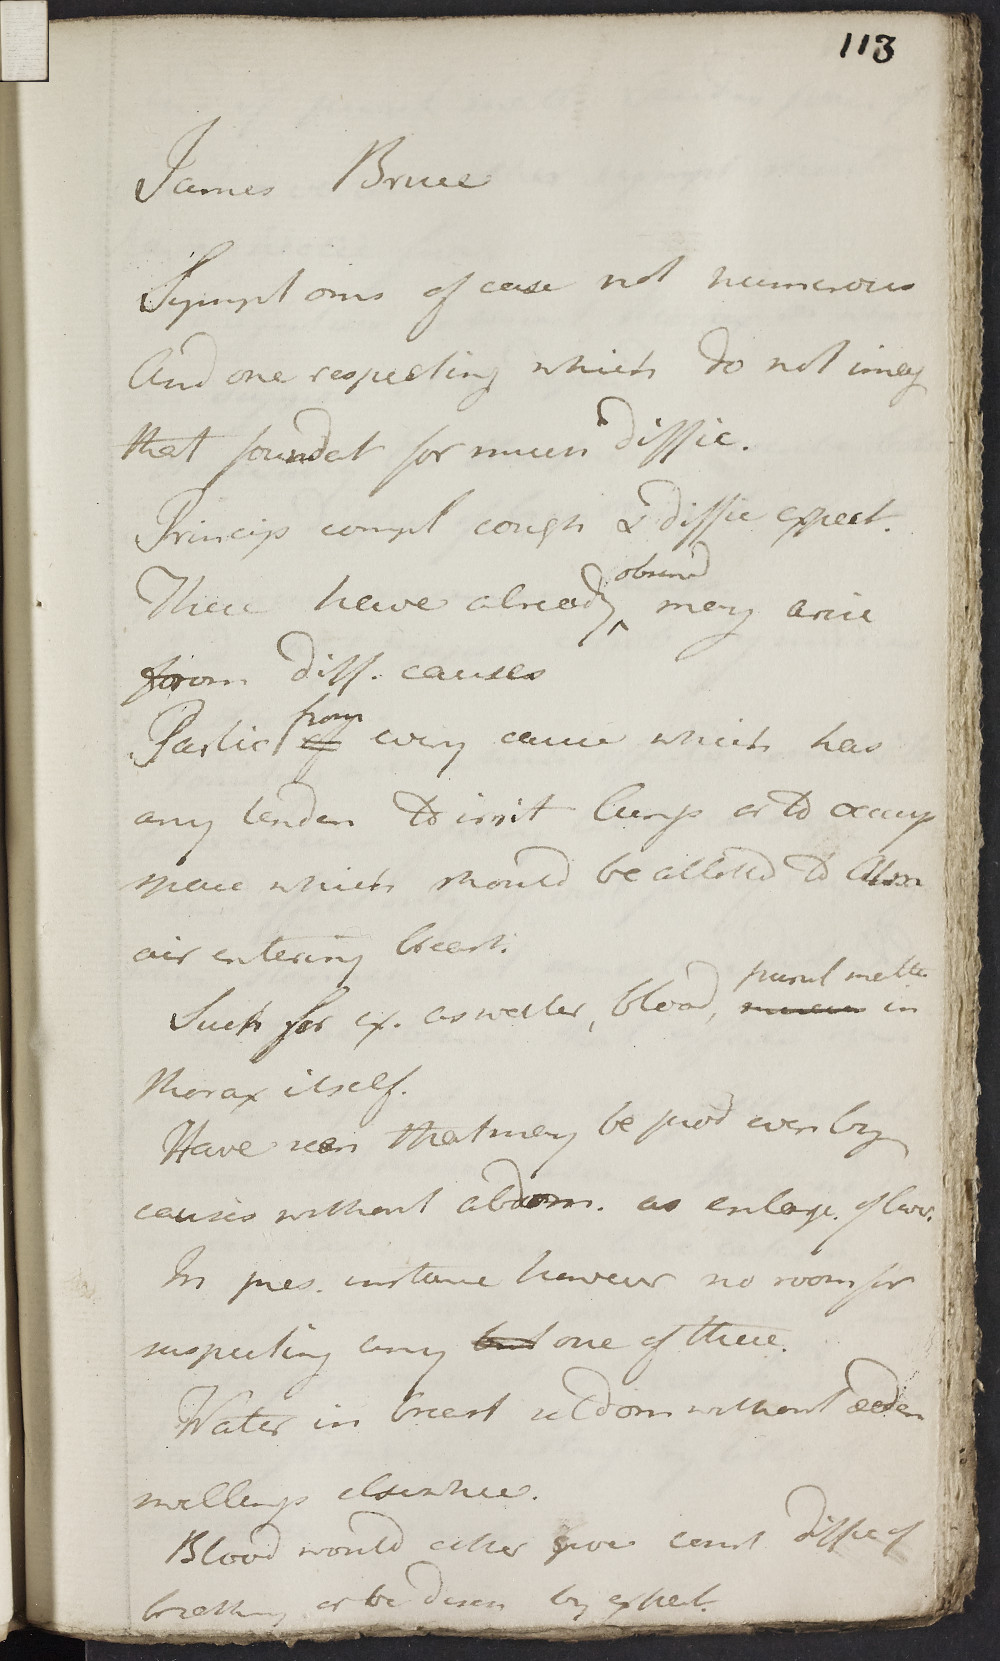 113
James Bruce
Symptoms of case not numerous
And one respecting which do not imag
that foundat for much diffic.
Princip compl cough & diffic expect.
These have already observd may arise
from diff. causes
Partic from every cause which has
any tenden to irrit lungs or to occupy
space which should be allotted to
air entering breast.
Such for ex. as water, blood, purul matter in
thorax itself.
Have seen that may be prod even by
causes without abdom. as enlarg. of liver.
In pres. instance however no room for
suspecting any one of these.
Water in breast seldom without œdem
swellings elsewhere.
Blood would either give const diffic of
breathing or be discov by expect.